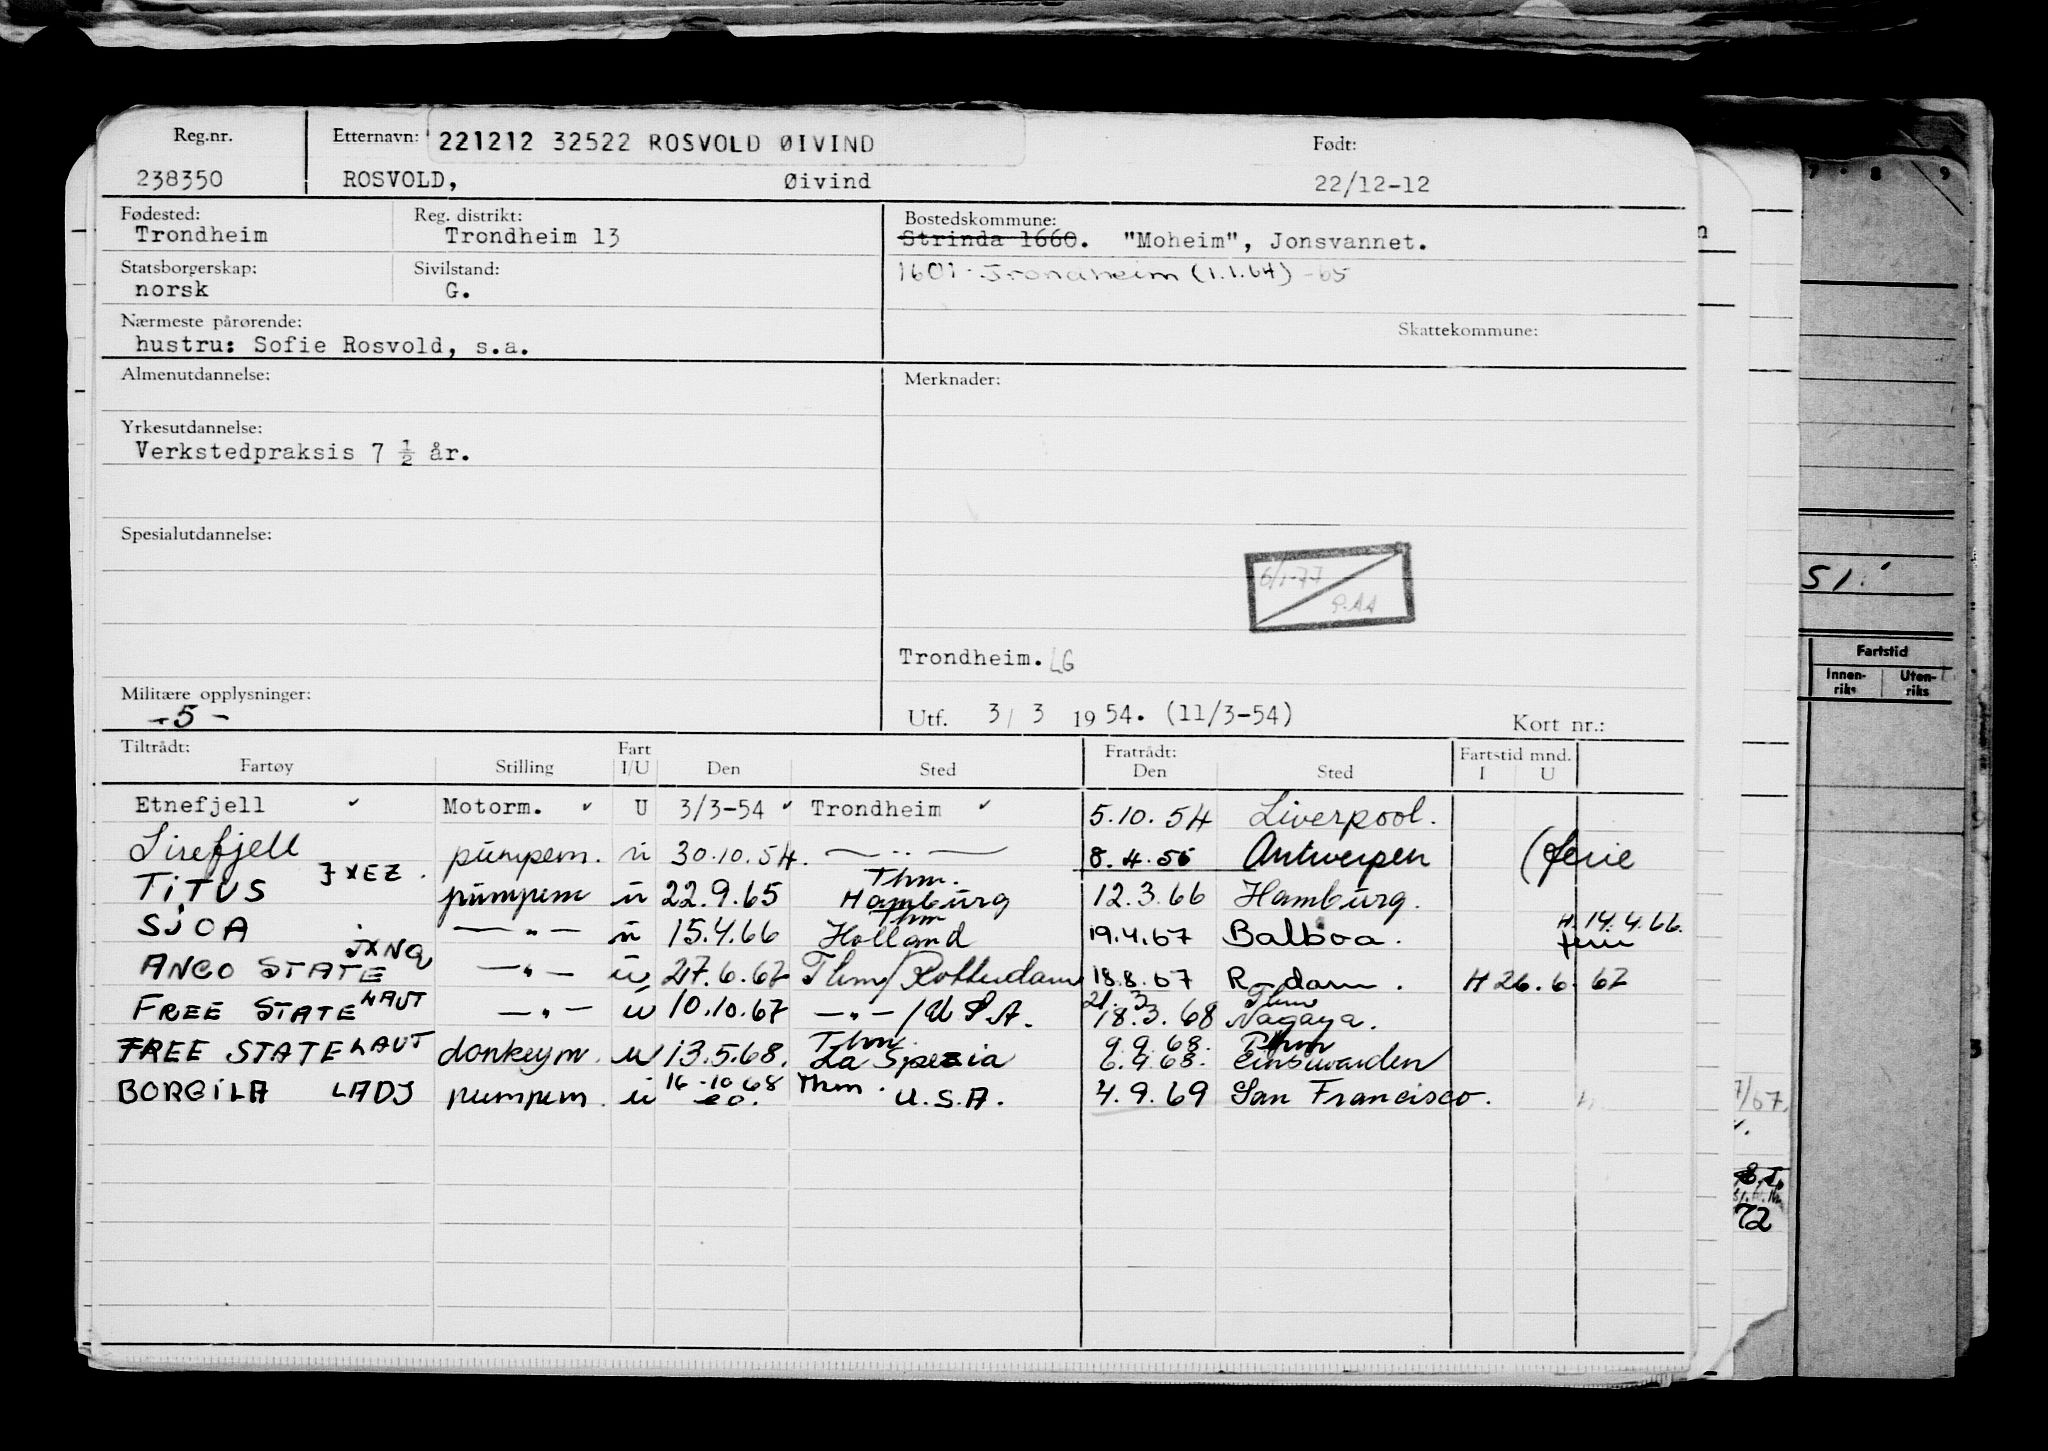 Reg.nr. Etternavn: 221212 32522 ROSVOLD ØIVIND Født:
238350 ROSVOLD, Øivind 22/12-12
Fødested: Reg. distrikt: Bostedskommune:
Trondheim Trondheim 13 Strinda 1660. "Moheim", Jonsvannet.
Statsborgerskap: Sivilstand: 1601 Trondheim (1.1.64) -65
norsk G.
Nærmeste pårørende: Skattekommune:
hustru: Sofie Rosvold, s.a.
Almenutdannelse: Merknader:
Yrkesutdannelse:
Verkstedpraksis 7 ½ år.
Spesialutdannelse:
6/1-77
P.AA
Trondheim. LG
Militære opplysninger:
-5-
Utf. 3/3 1954. (11/3-54) Kort nr.:
Tiltrådt: Fart Fratrådt: Fartstid mnd.
Fartøy Stilling I/U Den Sted Den Sted I U
Etnefjell Motorm. U 3/3-54 Trondheim 5.10.54 Liverpool.
Sirefjell pumpem. u 30.10.54. — " — 8.4.55 Antwerpen (ferie
TITUS JXEZ. pumpem u 22.9.65 Thm. Hamburg 12.3.66 Hamburg.
SJOA — " — u 15.4.66 Thm Holland 19.4.67 Balboa. H. 14.4.66. ferie
ANCO STATE JXNQ — " — u 27.6.67 Thm/Rotterdam 18.8.67 R-dam. H 26.6.67
FREE STATE LAUT — " — u 10.10.67 — " — /U.S.A. 21.3 18.3.68 Thm Nagaya.
FREE STATE LAUT donkeym. u 13.5.68. Thm. La Spezia 9.9.68. 6.9.68. Thm Einswarden
BORGILA LADJ pumpem. u 16-10 68 Thm. U.S.A. 4.9.69 San Francisco.
7 8 9
n
51.
Fartstid
Innen-riks Uten-riks
7/67.
72
3